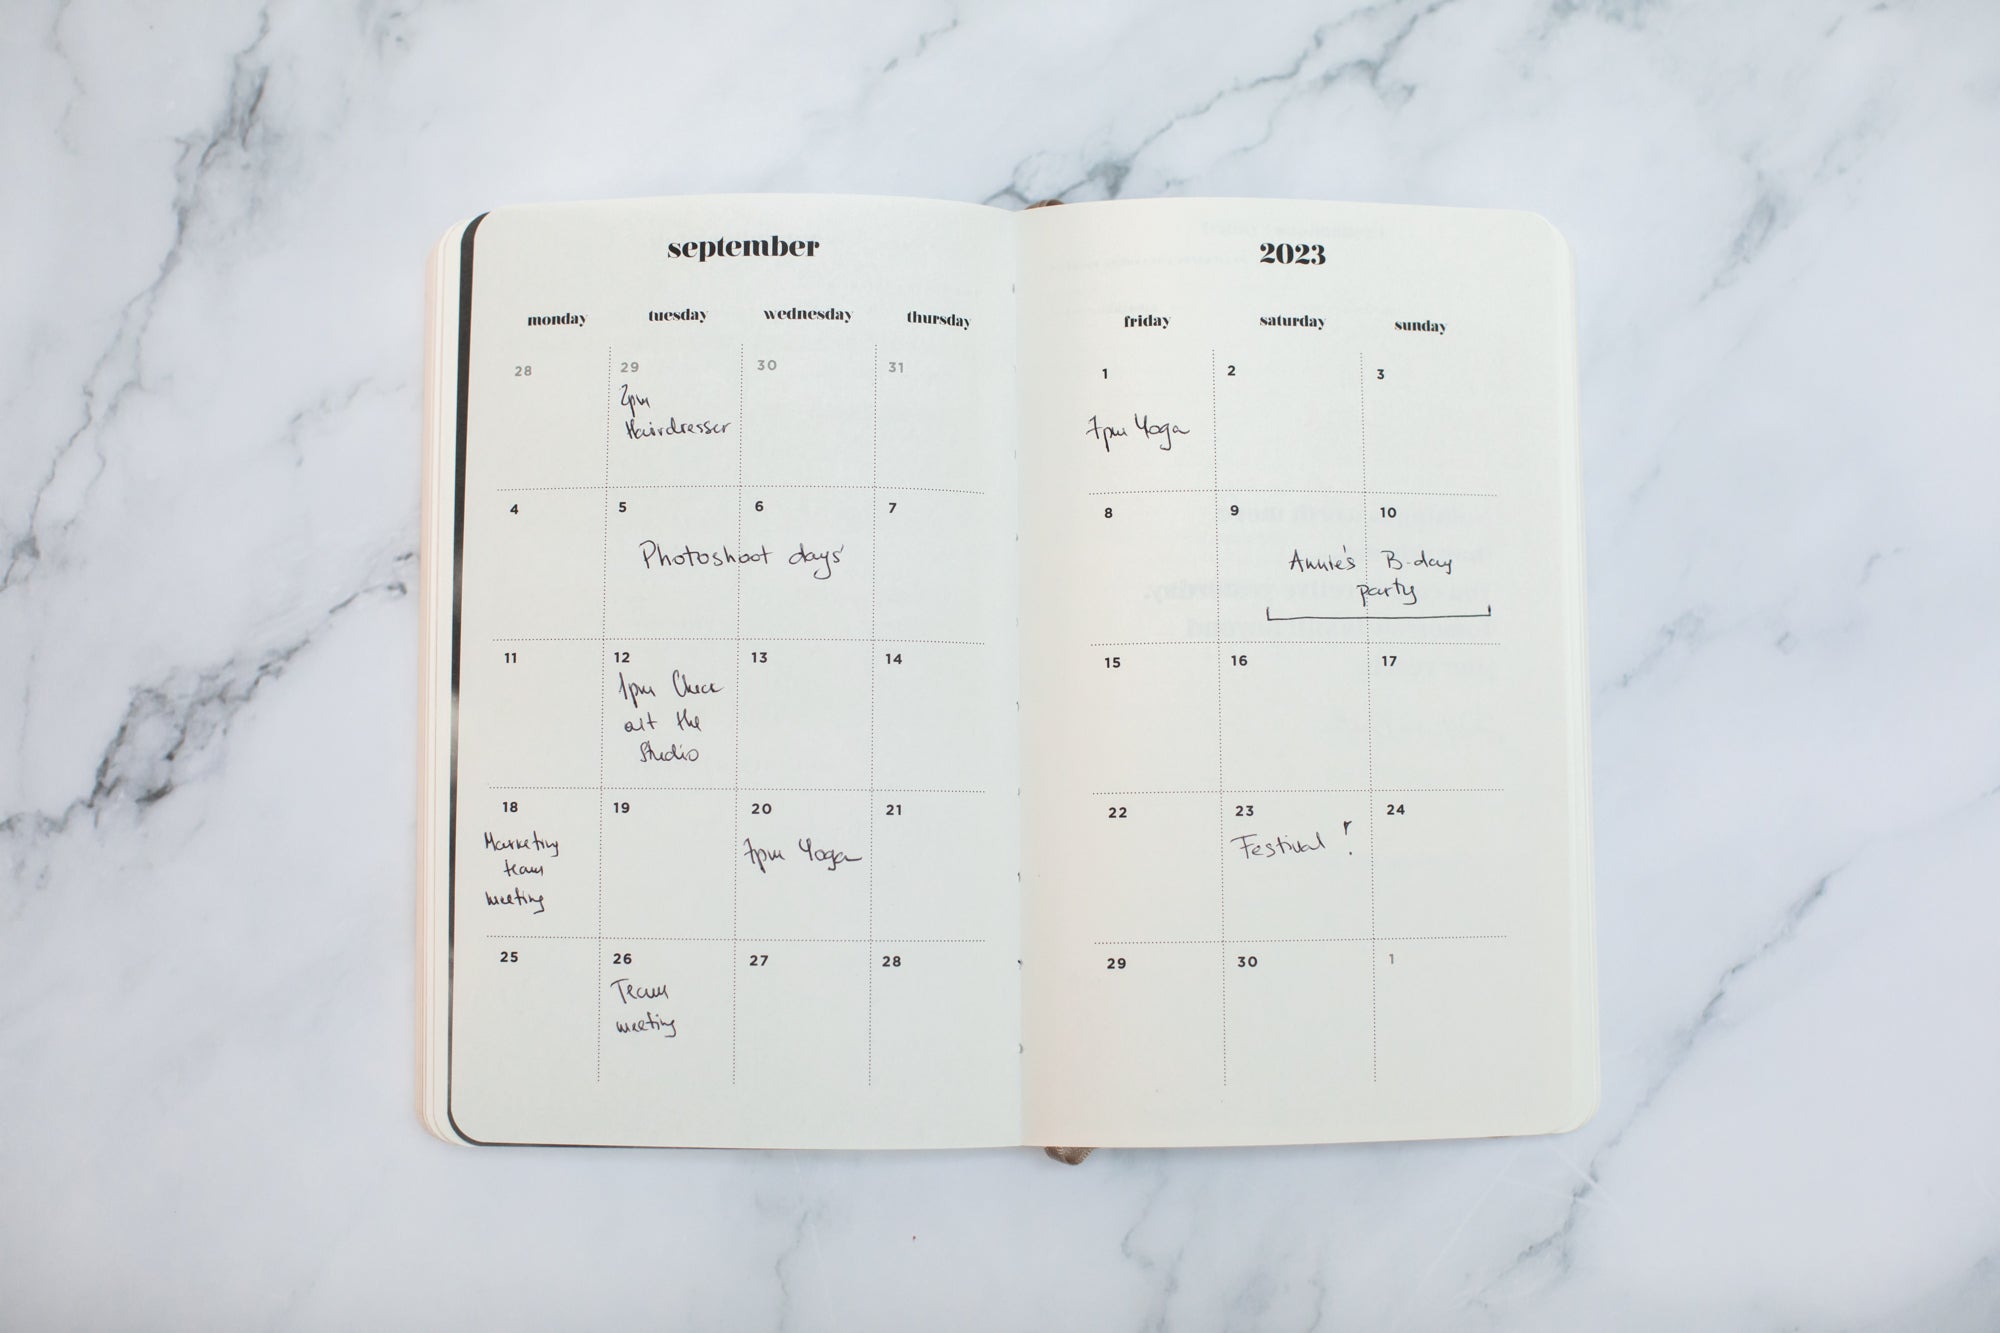 september
2023
monday tuesday wednesday thursday friday saturday sunday
28 29 30 31 1 2 3
2pm
Hairdresser
7pm Yoga
4 5 6 7 8 9 10
Photoshoot days
Annie's B-day
party
11 12 13 14 15 16 17
1pm Check
out the
Studio
18 19 20 21 22 23 24
Marketing
team
meeting
7pm Yoga
Festival !
25 26 27 28 29 30 1
Team
meeting